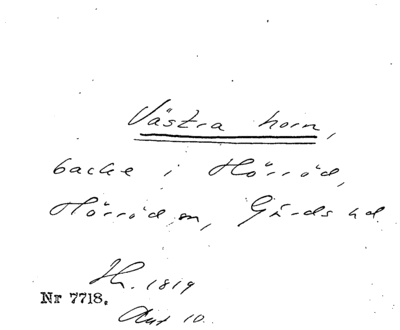 Västra horn,
backe i Hörröd,
Hörröds sn, Gärds hd
Hr. 1819
Nr 7718.
Akt 10.